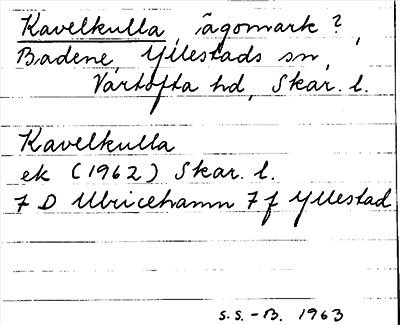 Kavelkulla, ägomark?,
Badene, Yllestads sn,
Vartofta hd, Skar. l.
Kavelkulla
ek (1962) Skar. l.
7 D Ulricehamn 7 f Yllestad
S.S.-B. 1963